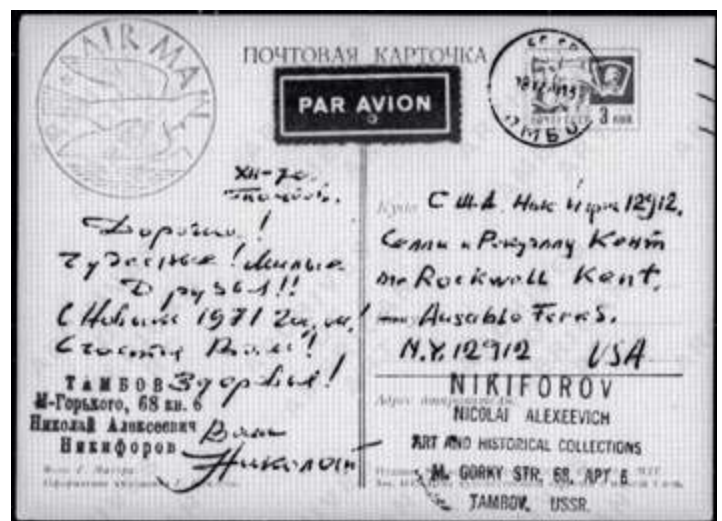 AIR MAIL
ПОЧТОВАЯ КАРТОЧКА
PAR AVION
3 коп
XII-70.
Тамбов.
Дорогие!
Чудесные! Милые
Друзья!!
С Новым 1971 Годом!
Счастья Вам!
Здоровья!
Ваш
Николай
ТАМБОВ
М-Горького, 68 кв. 6
Николай Алексеевич
Никифоров
Куда США. Нью Йорк 12912.
Салли и Рокуэллу Кент
Rockwell Kent,
Ausable Forks.
N.Y. 12912 USA
Адрес отправителя:
NIKIFOROV
NICOLAI ALEXEEVICH
ART AND HISTORICAL COLLECTIONS
M. GORKY STR, 68, APT 6
TAMBOV, USSR.